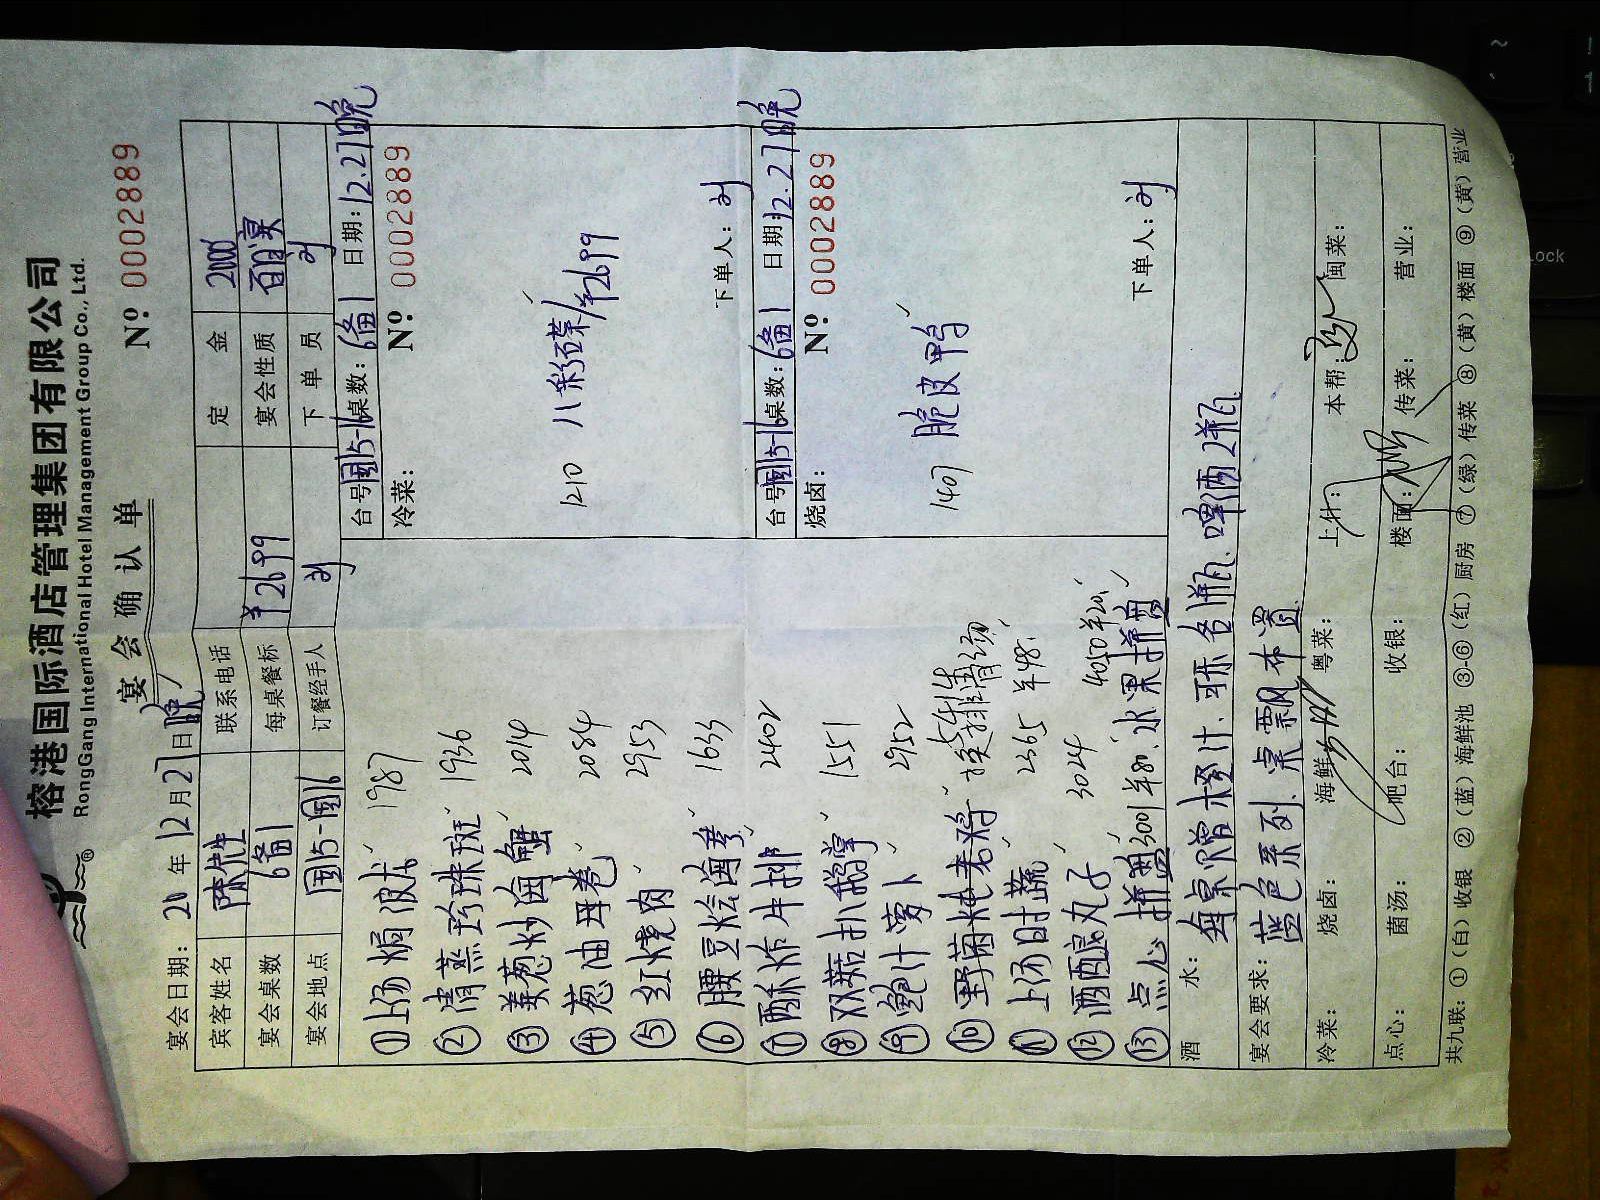 榕港国际酒店管理集团有限公司
RongGang International Hotel Management Group Co., Ltd.
宴会确认单
宴会日期: 20 年 12月27日晚 Nº 0002889
宾客姓名 陈先生 联系电话 定金 2000
宴会桌数 6备1 每桌餐标 ¥2699 宴会性质 百日宴
宴会地点 国15-国16 订餐经手人 刘 下单员 刘
台号 国15-16 桌数: 6备1 日期: 12.27晚
冷菜: Nº 0002889
1210 八彩碟/¥2699
下单人: 刘
台号 国15-16 桌数: 6备1 日期: 12.27晚
烧卤: Nº 0002889
1407 脆皮鸭
下单人: 刘
① 上汤焗波龙 1987
② 清蒸珍珠斑 1936
③ 姜葱炒肉蟹 2014
④ 葱油耳卷 2084
⑤ 红烧肉 2953
⑥ 腰豆烩海参 1633
⑦ 酥炸牛排 2402
⑧ 双菇扒鹅掌 1551
⑨ 鲍汁萝卜 2952
⑩ 野菌炖老鸡 换排骨汤
⑪ 上汤时蔬 2365 ¥48
⑫ 酒酿丸子 3024
⑬ 点心拼盘 3001 ¥80. 水果拼盘 4050 ¥20
酒水: 每桌赠橙汁、可乐各1瓶、啤酒2瓶
宴会要求: 蓝色系列、桌飘布置
冷菜: 烧卤: 海鲜: 粤菜: 上什: 本帮: 闽菜:
点心: 菌汤: 吧台: 收银: 楼面: 传菜: 营业:
共九联: ①(白)收银 ②(蓝)海鲜池 ③-⑥(红)厨房 ⑦(绿)传菜 ⑧(黄)楼面 ⑨(黄)营业